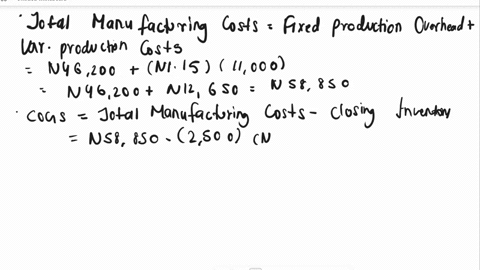 · Total Manufacturing Costs = Fixed production Overhead +
Var. production Costs
= N46,200 + (N1.15) (11,000)
= N46,200 + N12,650 = N58,850
· COGS = Total Manufacturing Costs - Closing Inventory
= N58,850 - (2,500) (N